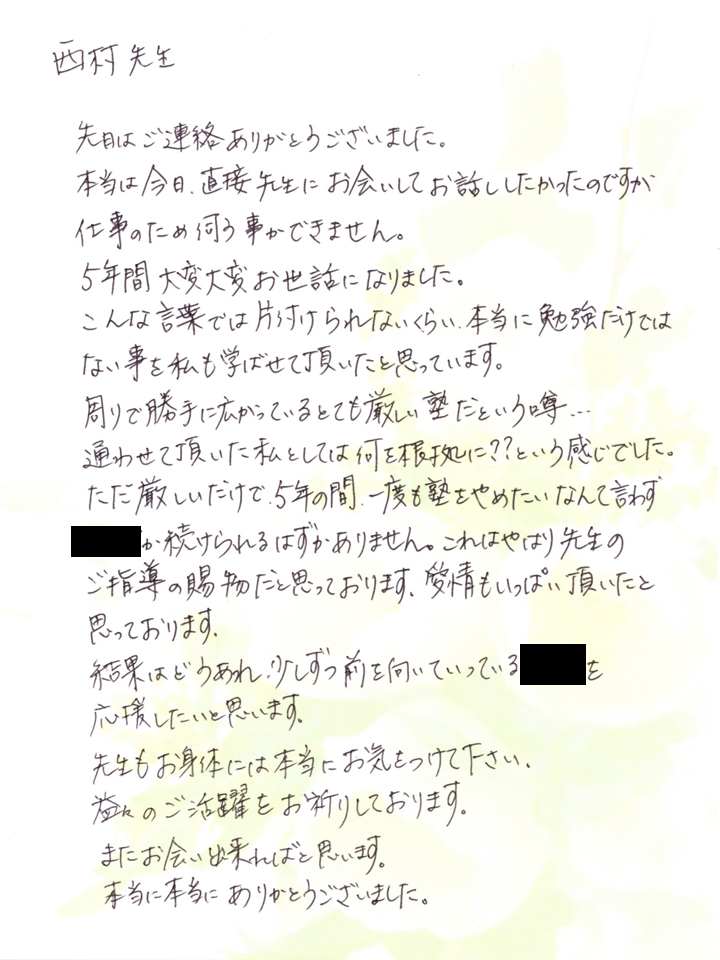 西村先生
先日はご連絡ありがとうございました。
本当は今日、直接先生にお会いしてお話ししたかったのですが
仕事のため伺う事ができません。
5年間大変大変お世話になりました。
こんな言葉では片付けられないくらい、本当に勉強だけでは
ない事を私も学ばせて頂いたと思っています。
周りで勝手に広がっているとても厳しい塾だという噂…
通わせて頂いた私としては何を根拠に??という感じでした。
ただ厳しいだけで、5年の間、一度も塾をやめたいなんて言わず
が続けられるはずがありません。これはやはり先生の
ご指導の賜物だと思っております、愛情もいっぱい頂いたと
思っております。
結果はどうあれ、少しずつ前を向いていっている を
応援したいと思います。
先生もお身体には本当にお気をつけて下さい、
益々のご活躍をお祈りしております。
またお会い出来ればと思います。
本当に本当にありがとうございました。